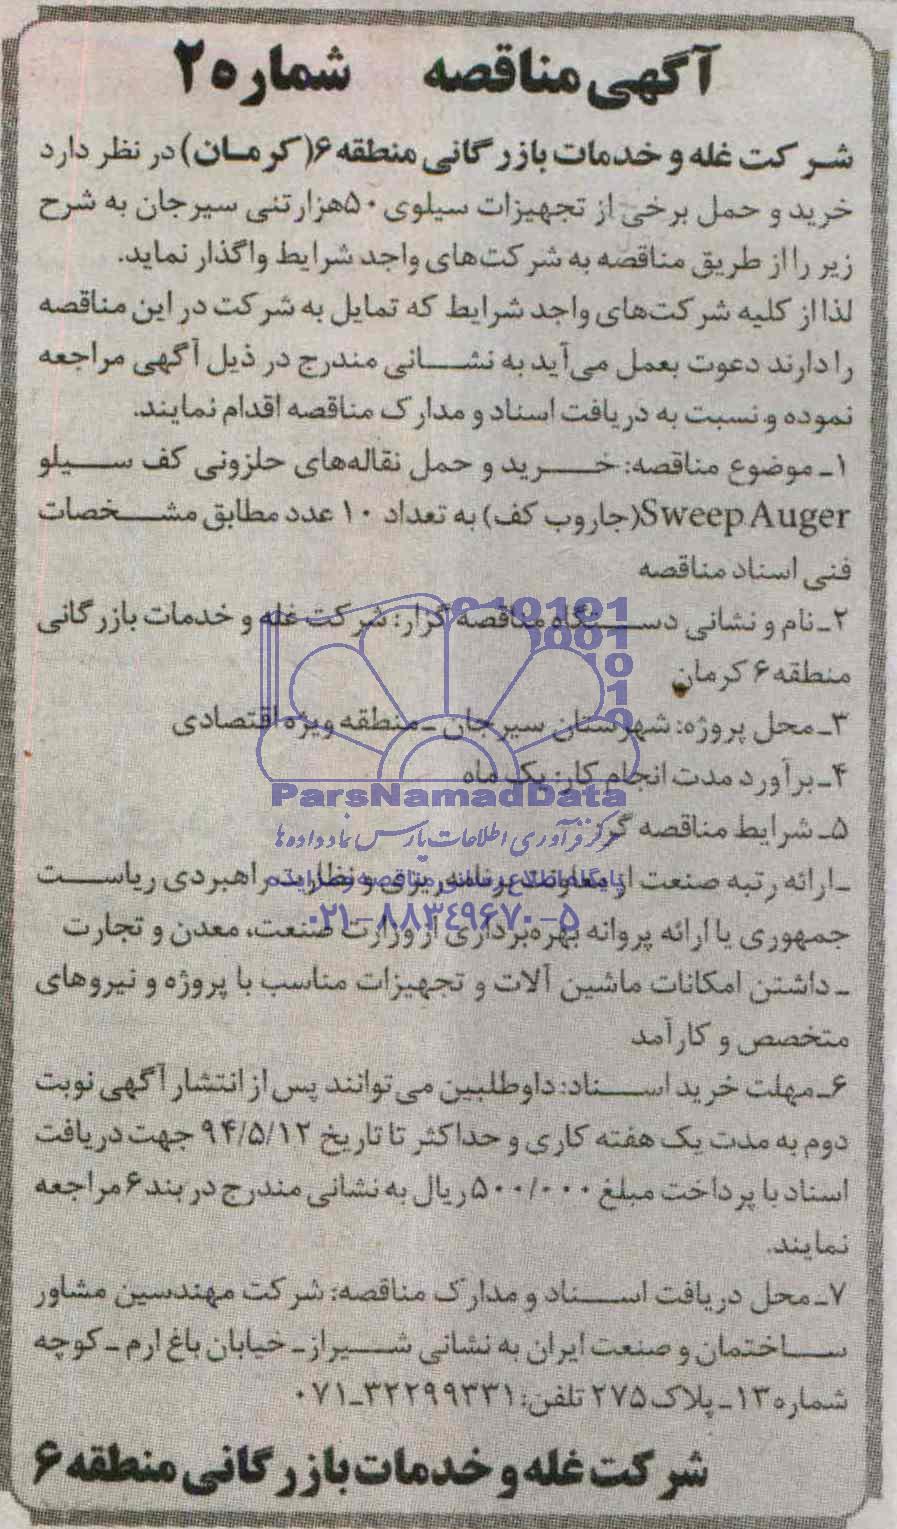 آگهی مناقصه شماره ۲
شرکت غله و خدمات بازرگانی منطقه ۶ (کرمان) در نظر دارد
خرید و حمل برخی از تجهیزات سیلوی ۵۰هزارتنی سیرجان به شرح
زیر را از طریق مناقصه به شرکت‌های واجد شرایط واگذار نماید.
لذا از کلیه شرکت‌های واجد شرایط که تمایل به شرکت در این مناقصه
را دارند دعوت بعمل می‌آید به نشانی مندرج در ذیل آگهی مراجعه
نموده و نسبت به دریافت اسناد و مدارک مناقصه اقدام نمایند.
۱ـ موضوع مناقصه: خرید و حمل نقاله‌های حلزونی کف سیلو
Sweep Auger (جاروب کف) به تعداد ۱۰ عدد مطابق مشخصات
فنی اسناد مناقصه
۲ـ نام و نشانی دستگاه مناقصه گزار: شرکت غله و خدمات بازرگانی
منطقه ۶ کرمان
۳ـ محل پروژه: شهرستان سیرجان ـ منطقه ویژه اقتصادی
۴ـ برآورد مدت انجام کار: یک ماه
ParsNamadData
۵ـ شرایط مناقصه گر:
مرکز فرآوری اطلاعات پارس نماد داده‌ها
ـ ارائه رتبه صنعت از معاونت برنامه‌ریزی و نظارت راهبردی ریاست
۰۲۱-۸۸۳۴۹۶۷۰-۵
جمهوری یا ارائه پروانه بهره‌برداری از وزارت صنعت، معدن و تجارت
ـ داشتن امکانات ماشین آلات و تجهیزات مناسب با پروژه و نیروهای
متخصص و کارآمد
۶ـ مهلت خرید اسناد: داوطلبین می‌توانند پس از انتشار آگهی نوبت
دوم به مدت یک هفته کاری و حداکثر تا تاریخ ۹۴/۵/۱۲ جهت دریافت
اسناد با پرداخت مبلغ ۵۰۰/۰۰۰ ریال به نشانی مندرج در بند ۶ مراجعه
نمایند.
۷ـ محل دریافت اسناد و مدارک مناقصه: شرکت مهندسین مشاور
ساختمان و صنعت ایران به نشانی شیراز ـ خیابان باغ ارم ـ کوچه
شماره ۱۳ ـ پلاک ۲۷۵ تلفن: ۳۲۲۹۹۳۳۱ـ۰۷۱
شرکت غله و خدمات بازرگانی منطقه ۶